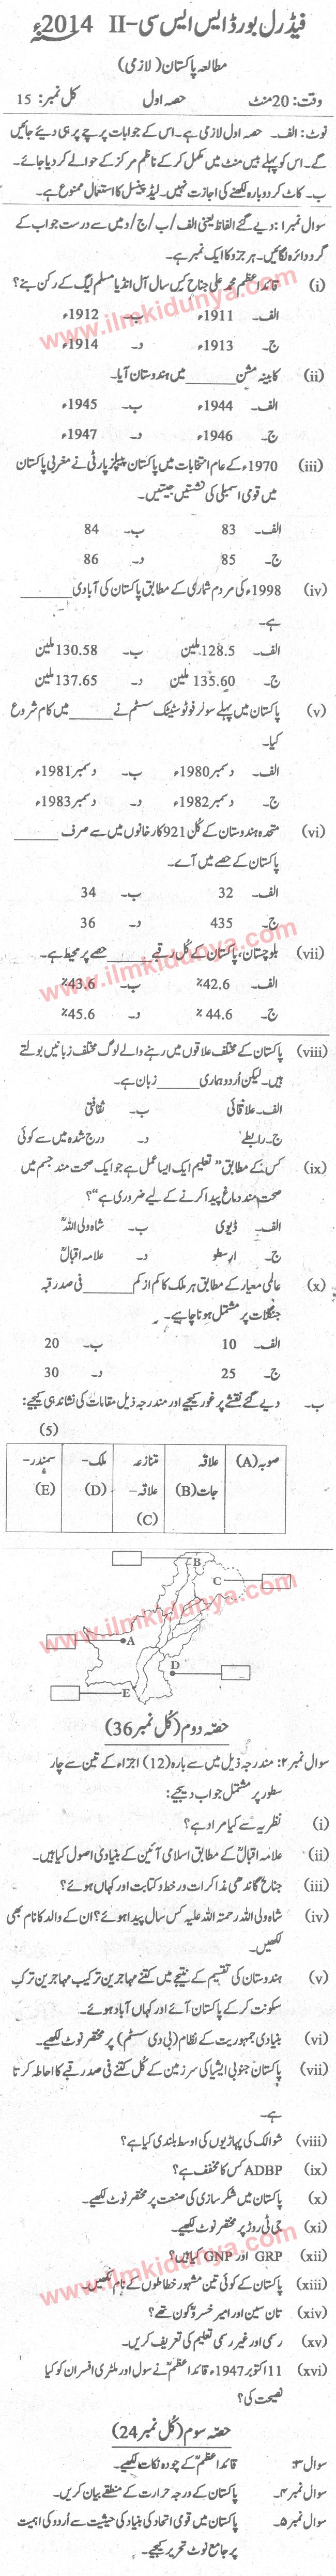 فیڈرل بورڈ ایس ایس سی-II 2014ء
مطالعہ پاکستان (لازمی)
وقت: 20 منٹ حصہ اول کل نمبر: 15
نوٹ: الف۔ حصہ اول لازمی ہے۔ اس کے جوابات پرچے پر ہی دیئے جائیں
گے۔ اس کو پہلے بیس منٹ میں مکمل کر کے ناظم مرکز کے حوالے کر دیا جائے۔
ب۔ کاٹ کر دوبارہ لکھنے کی اجازت نہیں۔ لیڈ پینسل کا استعمال ممنوع ہے۔
سوال نمبر ۱: دیے گئے الفاظ یعنی الف/ب/ج/د میں سے درست جواب کے
گرد دائرہ لگائیں۔ ہر جزو کا ایک نمبر ہے۔
(i) قائداعظم محمد علی جناح کس سال آل انڈیا مسلم لیگ کے رکن بنے؟
الف۔ 1911ء ب۔ 1912ء
ج۔ 1913ء د۔ 1914ء
(ii) کابینہ مشن ______ میں ہندوستان آیا۔
الف۔ 1944ء ب۔ 1945ء
ج۔ 1946ء د۔ 1947ء
(iii) 1970ء کے عام انتخابات میں پاکستان پیپلز پارٹی نے مغربی پاکستان
میں قومی اسمبلی کی نشستیں جیتیں۔
الف۔ 83 ب۔ 84
ج۔ 85 د۔ 86
(iv) 1998ء کی مردم شماری کے مطابق پاکستان کی آبادی ______
ہے۔
الف۔ 128.5 ملین ب۔ 130.58 ملین
ج۔ 135.60 ملین د۔ 137.65 ملین
(v) پاکستان میں پہلے سولر فوٹو سٹینک سسٹم نے ______ میں کام شروع
کیا۔
الف۔ دسمبر 1980ء ب۔ دسمبر 1981ء
ج۔ دسمبر 1982ء د۔ دسمبر 1983ء
(vi) متحدہ ہندوستان کے کُل 921 کارخانوں میں سے صرف ______
پاکستان کے حصے میں آے۔
الف۔ 32 ب۔ 34
ج۔ 435 د۔ 36
(vii) بلوچستان، پاکستان کے کُل رقبے ______ حصے پر محیط ہے۔
الف۔ 42.6% ب۔ 43.6%
ج۔ 44.6% د۔ 45.6%
(viii) پاکستان کے مختلف علاقوں میں رہنے والے لوگ مختلف زبانیں بولتے
ہیں۔ لیکن اُردو ہماری ______ زبان ہے۔
الف۔ علاقائی ب۔ ثقافتی
ج۔ رابطے د۔ درج شدہ میں سے کوئی
(ix) کس کے مطابق "تعلیم ایک ایسا عمل ہے جو ایک صحت مند جسم میں
صحت مند دماغ پیدا کرنے کے لیے ضروری ہے"؟
الف۔ ڈیوی ب۔ شاہ ولی اللہؒ
ج۔ ارسطو د۔ علامہ اقبالؒ
(x) عالمی معیار کے مطابق ہر ملک کا کم از کم ______ فی صد رقبہ
جنگلات پر مشتمل ہونا چاہیے۔
الف۔ 10 ب۔ 20
ج۔ 25 د۔ 30
ب۔ دیے گئے نقشے پر غور کیجیے اور مندرجہ ذیل مقامات کی نشاندہی کیجیے:
(5)
صوبہ (A) علاقہ جات (B) متنازعہ علاقہ- (C) ملک- (D) سمندر- (E)
B
C
A
D
E
حصہ دوم (کُل نمبر 36)
سوال نمبر ۲: مندرجہ ذیل میں سے بارہ (12) اجزاء کے تین سے چار
سطور پر مشتمل جواب دیجیے:
(i) نظریہ سے کیا مراد ہے؟
(ii) علامہ اقبالؒ کے مطابق اسلامی آئین کے بنیادی اصول کیا ہیں۔
(iii) جناح گاندھی مذاکرات و خط و کتابت اور کہاں ہوئے؟
(iv) شاہ ولی اللہ رحمتہ اللہ علیہ کس سال پیدا ہوئے؟ ان کے والد کا نام بھی
لکھیں۔
(v) ہندوستان کی تقسیم کے نتیجے میں کتنے مہاجرین ترکیب مہاجرین ترکِ
سکونت کر کے پاکستان آئے اور کہاں آباد ہوئے۔
(vi) بنیادی جمہوریت کے نظام (بی ڈی سسٹم) پر مختصر نوٹ لکھیے۔
(vii) پاکستان جنوبی ایشیا کی سرزمین کے کُل کتنے فی صد رقبے کا احاطہ کرتا
ہے۔
(viii) شوالک کی پہاڑیوں کی اوسط بلندی کیا ہے؟
(ix) ADBP کس کا مخفف ہے؟
(x) پاکستان میں شکر سازی کی صنعت پر مختصر نوٹ لکھیے۔
(xi) جی ٹی روڈ پر مختصر نوٹ لکھیے۔
(xii) GRP اور GNP کیا ہیں؟
(xiii) پاکستان کے کوئی تین مشہور خطاطوں کے نام لکھیں۔
(xiv) تان سین اور امیر خسروؒ کون تھے؟
(xv) رسمی اور غیر رسمی تعلیم کی تعریف کریں۔
(xvi) 11 اکتوبر 1947ء قائداعظمؒ نے سول اور ملٹری افسران کو کیا
نصیحت کی؟
حصہ سوم (کُل نمبر 24)
سوال ۳: قائداعظمؒ کے چودہ نکات لکھیے۔
سوال نمبر ۴۔ پاکستان کے درجہ حرارت کے منطقے بیان کریں۔
سوال نمبر ۵۔ پاکستان میں قومی اتحاد کی بنیاد کی حیثیت سے اُردو کی اہمیت
پر جامع نوٹ تحریر کیجیے۔
www.ilmkidunya.com
www.ilmkidunya.com
www.ilmkidunya.com
www.ilmkidunya.com